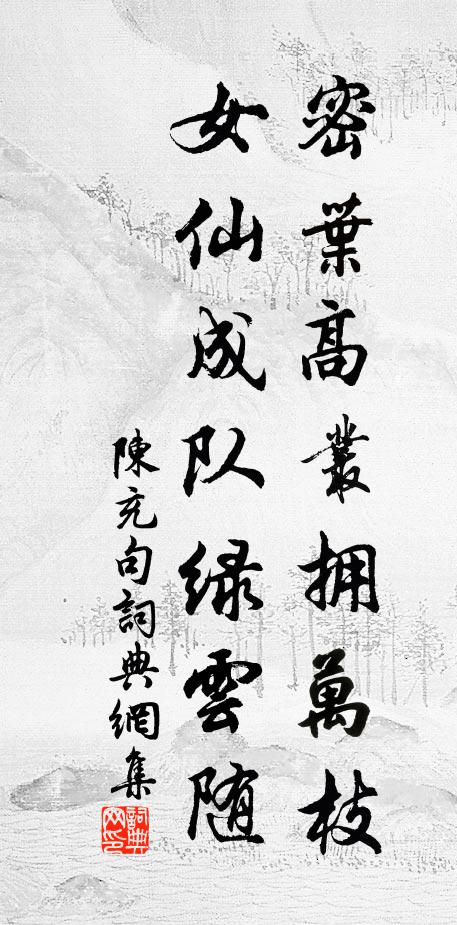 密葉高叢拥萬枝
女仙成队绿雲随
陳充句詞典網集
詞典網印